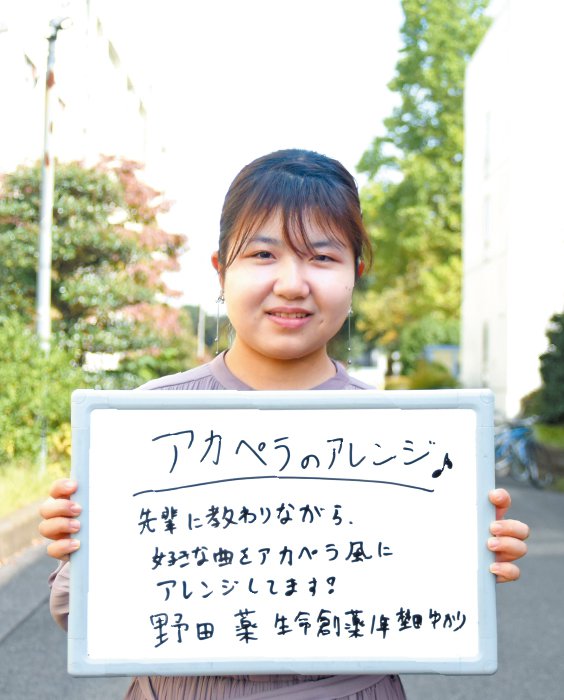 アカペラのアレンジ♪
先輩に教わりながら、
好きな曲をアカペラ風に
アレンジしてます!
野田 薬 生命創薬1年 田ゆかり